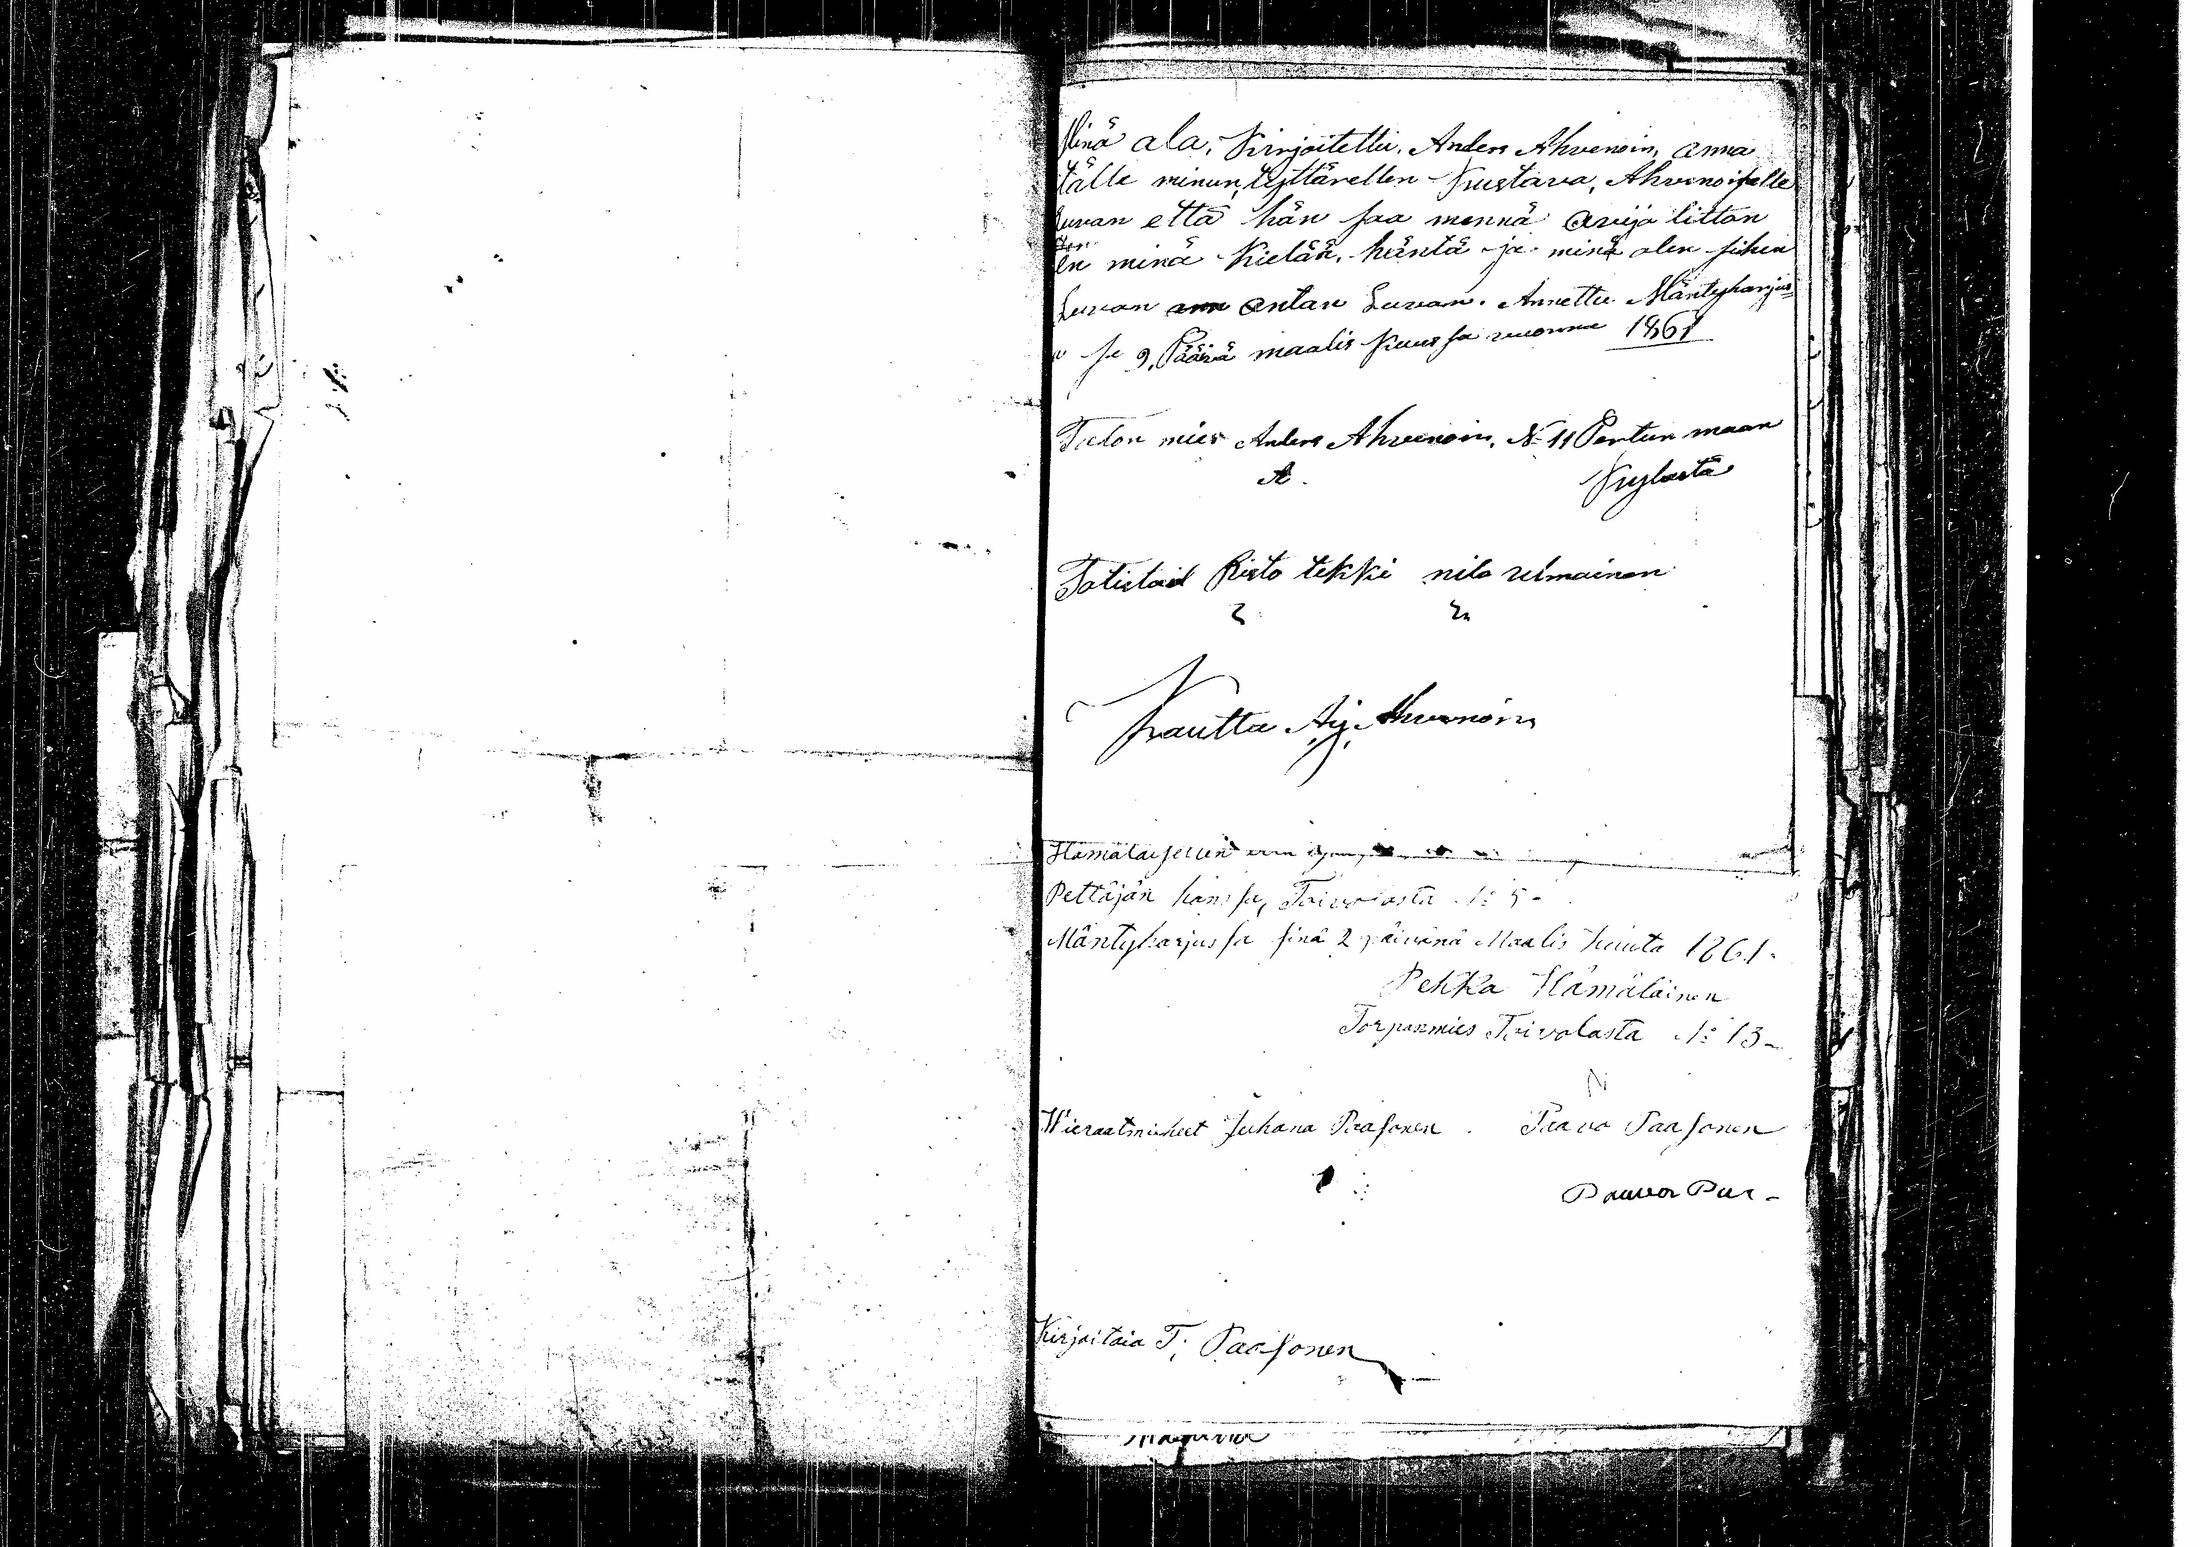 Minä ala, Kirjoitettu, Anders Ahvenoin, anna
tälle minun, tyttärellen Kustava, Ahvenoiselle
luvan että hän saa mennä avijo liitton
en minä kielää, häntä ja minä olen siihen
Luvan antan Luvan. Annettu Mäntyharjus=
sa 9, Päivä maalis kuussa vuonna 1861
Talon mies Anders Ahvenoin, No 11 Pertun maan
A. Kylästä
Totistaid Risto tekki nilo relmainen
Kautta Aj. Ahvenoin
Hämäläisellen
Pettäjän kanssa, Toivolasta No 5-
Mäntyharjussa sinä 2 päivänä Maalis kuuta 1861.
Pekka Hämäläinen
Torpanmies Toivolasta No 13-
Wieraatmiehet Juhana Paasonen . Paavo Paasonen
Pauvor Pus-
Kirjoitaia T. Paasonen